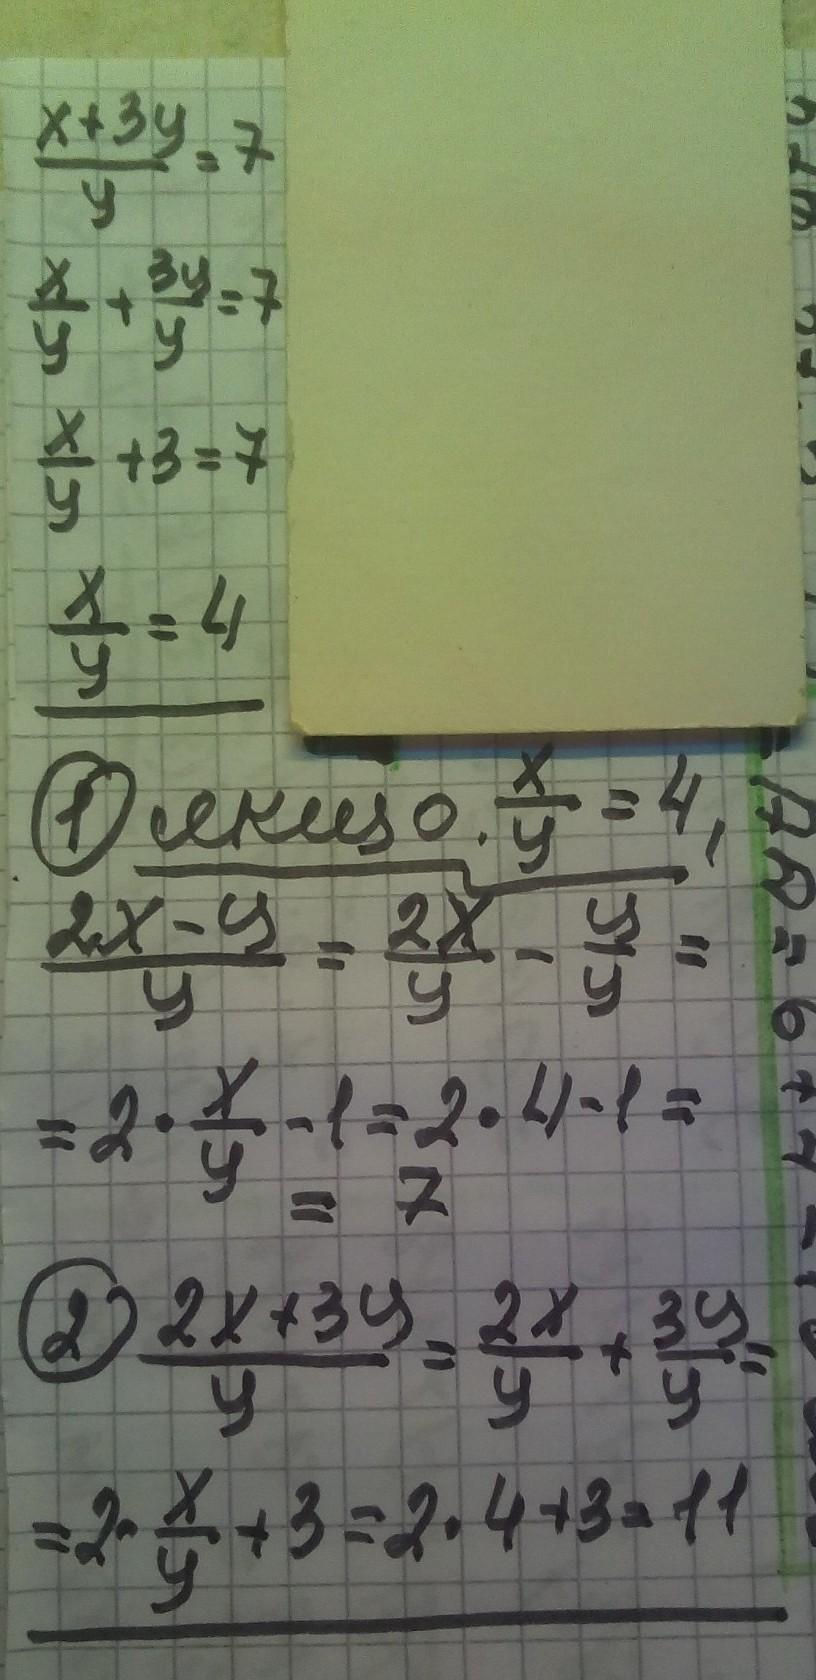 (x+3y)/y = 7
x/y + 3y/y = 7
x/y + 3 = 7
x/y = 4
① якщо x/y = 4,
(2x-y)/y = 2x/y - y/y =
= 2 · x/y - 1 = 2 · 4 - 1 =
= 7
② (2x+3y)/y = 2x/y + 3y/y =
= 2 · x/y + 3 = 2 · 4 + 3 = 11